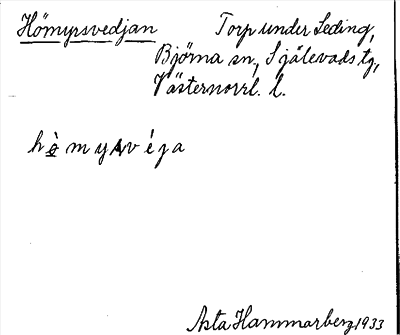 Hömyrsvedjan Torp under Leding,
Björna sn, Själevads tg,
Västernorrl. l.
hø̀myṣvéja
Asta Hammarberg 1933